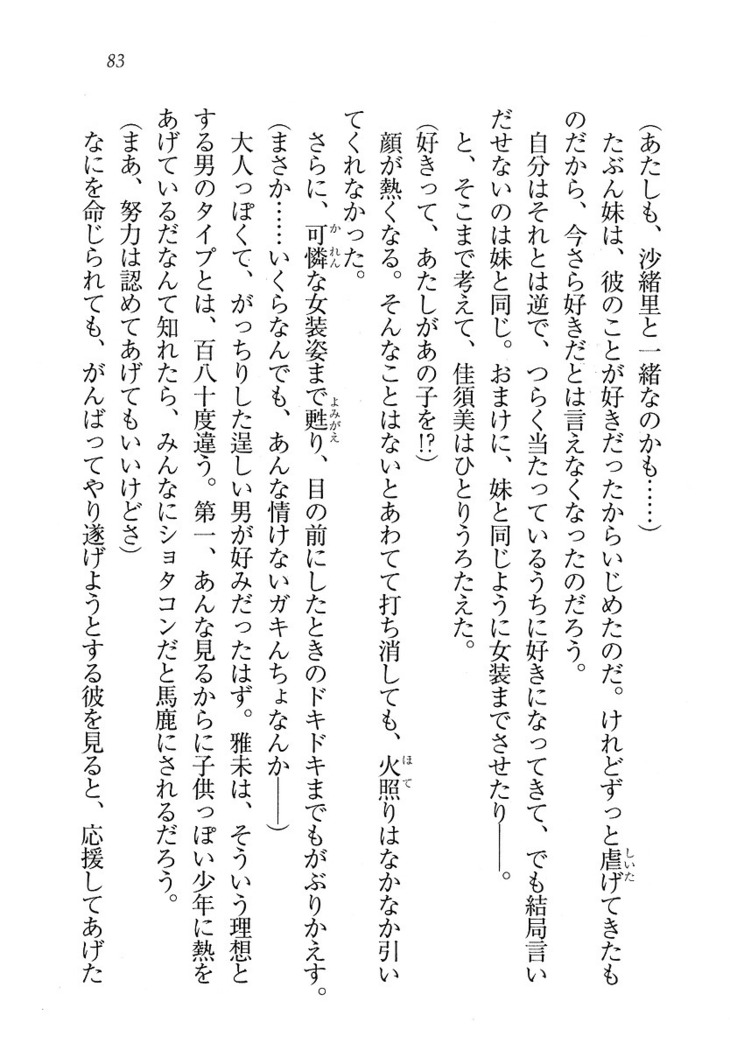 83
(あたしも、沙緒里と一緒なのかも……)
たぶん妹は、彼のことが好きだったからいじめたのだ。けれどずっと虐げてきたも
のだから、今さら好きだとは言えなくなったのだろう。
自分はそれとは逆で、つらく当たっているうちに好きになってきて、でも結局言い
だせないのは妹と同じ。おまけに、妹と同じように女装までさせたり――。
と、そこまで考えて、佳須美はひとりうろたえた。
(好きって、あたしがあの子を!?)
顔が熱くなる。そんなことはないとあわてて打ち消しても、火照りはなかなか引い
てくれなかった。
さらに、可憐な女装姿まで甦り、目の前にしたときのドキドキまでもがぶりかえす。
(まさか……いくらなんでも、あんな情けないガキんちょなんか――)
大人っぽくて、がっちりした逞しい男が好みだったはず。雅未は、そういう理想と
する男のタイプとは、百八十度違う。第一、あんな見るからに子供っぽい少年に熱を
あげているだなんて知れたら、みんなにショタコンだと馬鹿にされるだろう。
(まあ、努力は認めてあげてもいいけどさ)
なにを命じられても、がんばってやり遂げようとする彼を見ると、応援してあげた